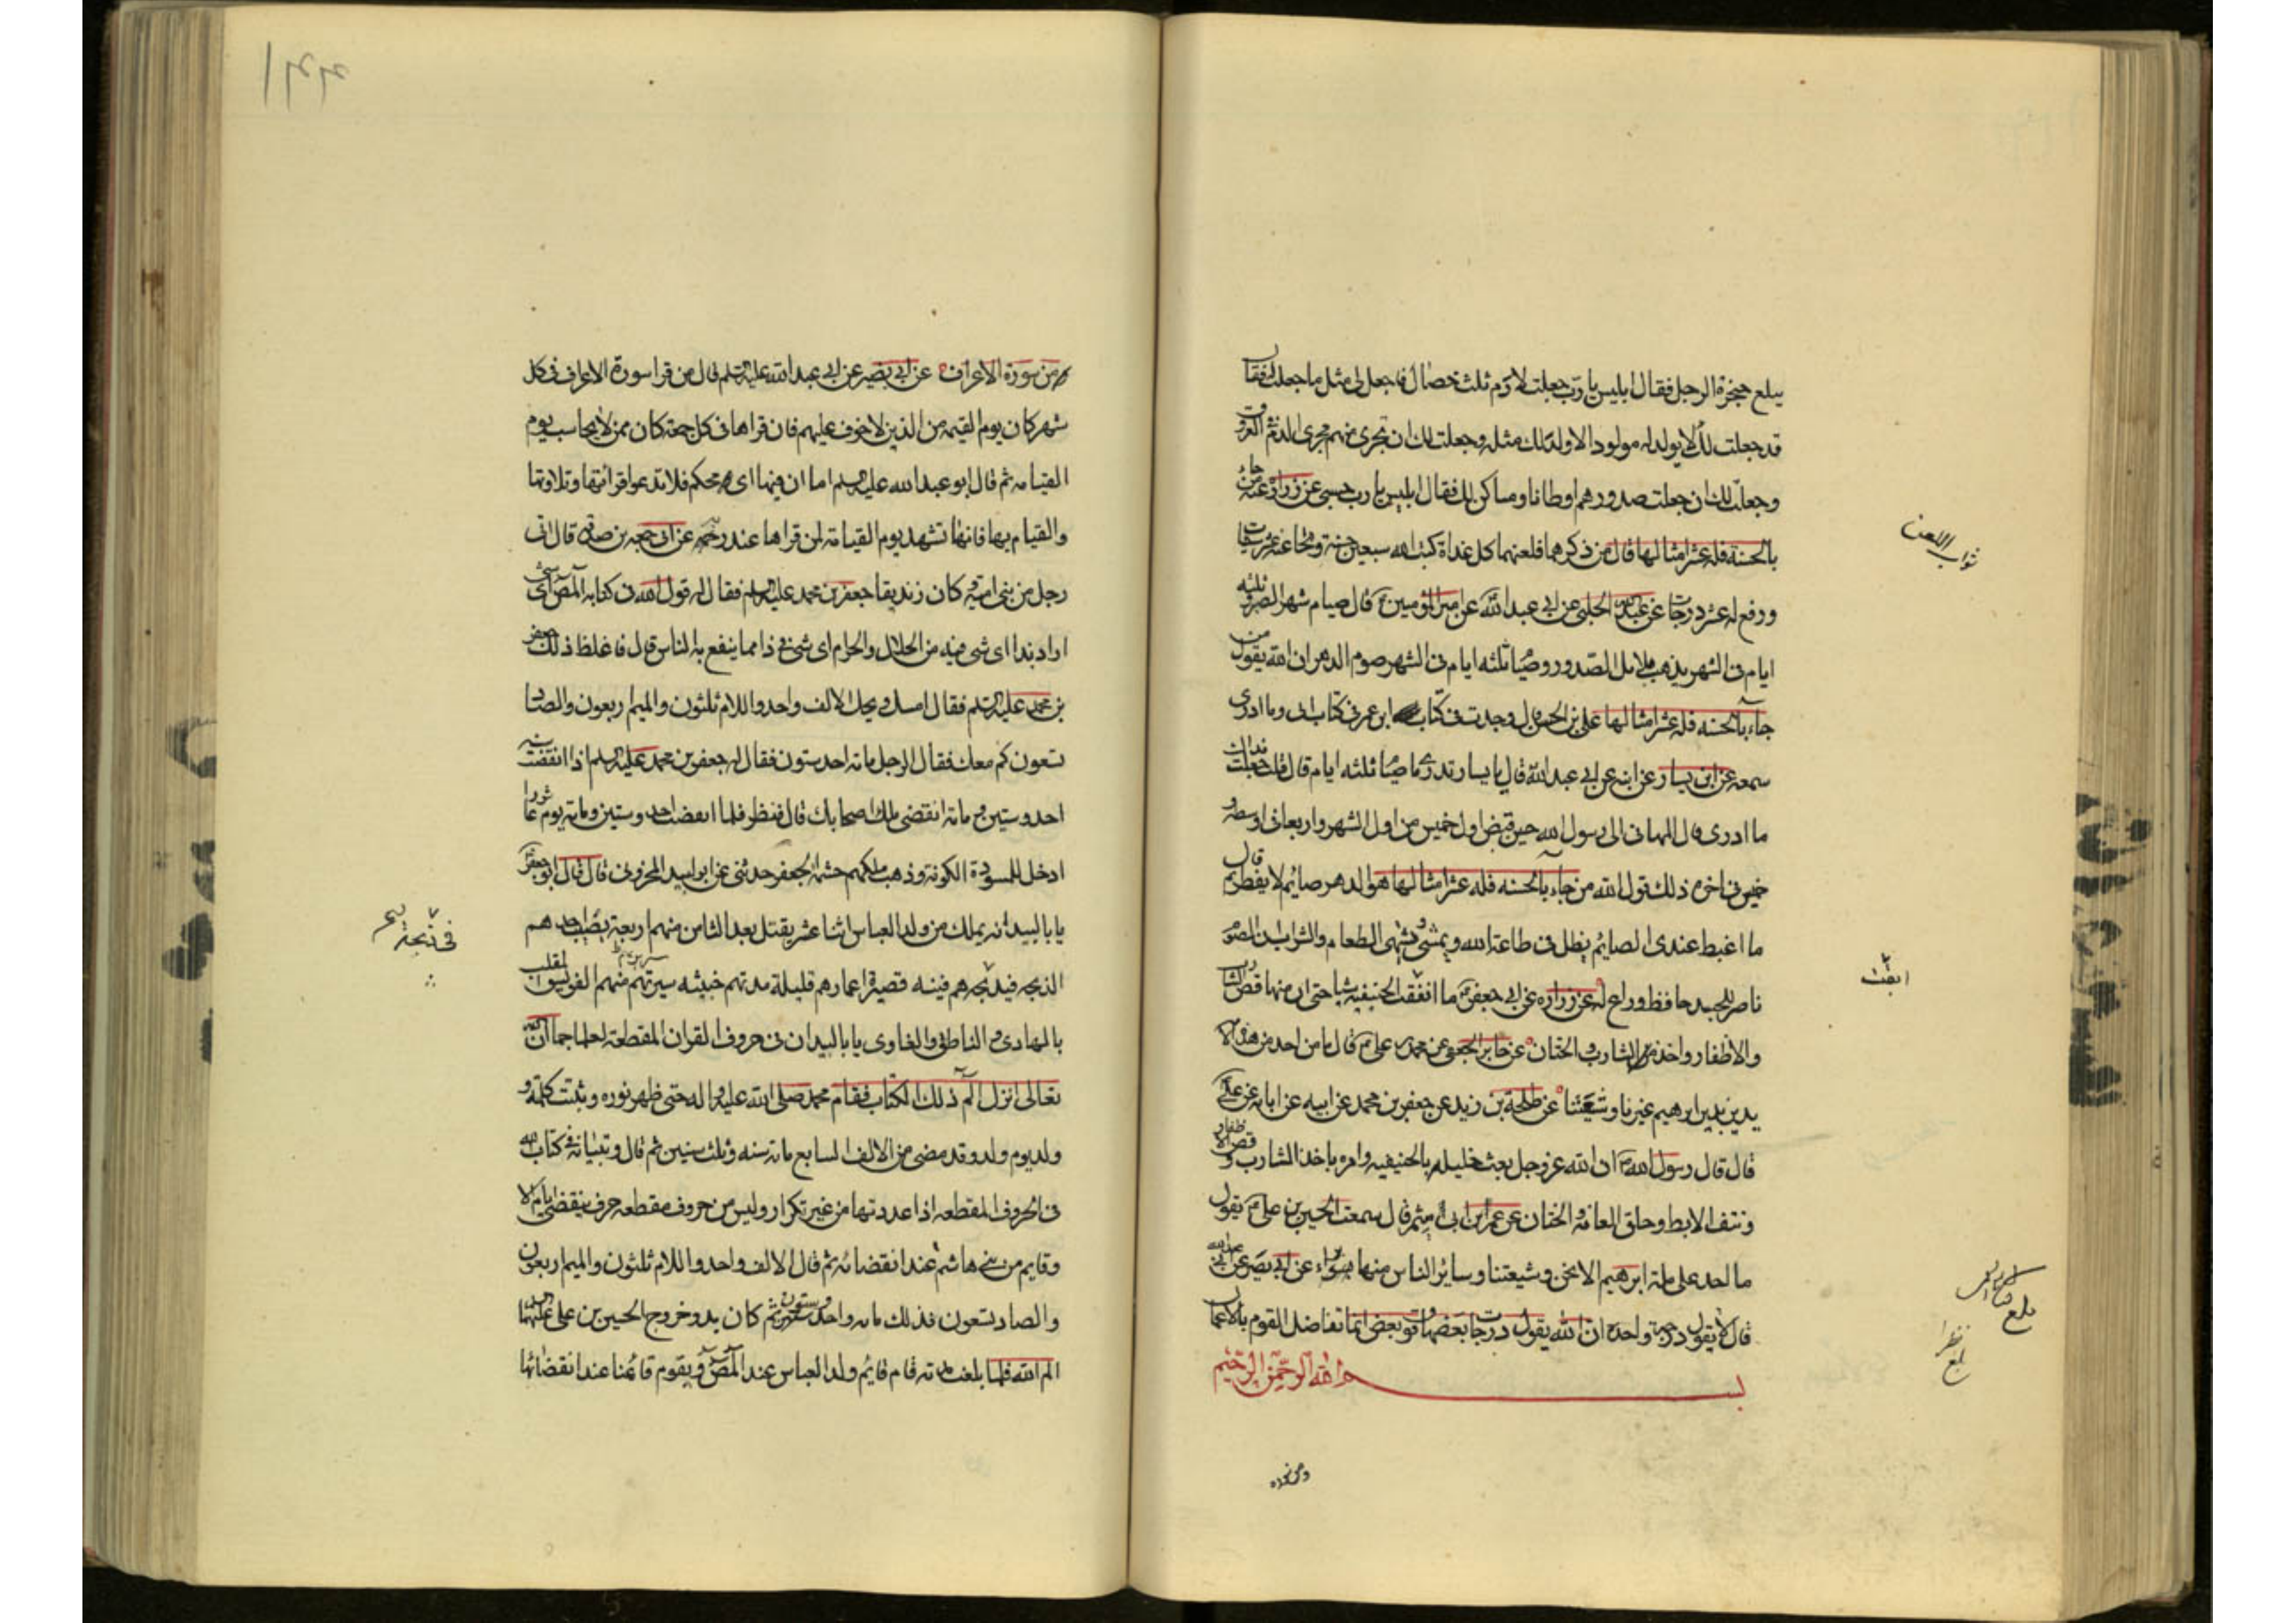 يبلغ حنجرة الرجل فقال ابليس يا رب جعلت لادم ثلث خصال فاجعل لى مثل ما جعلت له فقال
قد جعلت لك لا يولد له مولود الا ولد لك مثله وجعلت لك ان تجرى منهم مجرى الدم فى العروق
وجعلت لك ان جعلت صدورهم اوطانا ومساكن لك فقال ابليس يا رب حسبى عن زرارة عنه من جاء
بالحسنة فله عشر امثالها قال من ذكرهما فلعنهما كل غداة كتب الله سبعين حسنة ومحا عنه عشر سيات
ورفع له عشر درجات عن عبد الله الحلبى عن ابى عبد الله عن امير المومنين قال صيام شهر الصبر وثلثه
ايام فى الشهر يذهب بلابل الصدور وصيام ثلثه ايام فى الشهر صوم الدهر ان الله يقول من
جاء بالحسنه فله عشر امثالها على بن الحسن قال وجدت فى كتاب ابن عمر فى كتاب ابى وما ادرى
سمعه عن ابن يسار عن ابيه عن ابى عبد الله قال يا يسار تدرى ما صيام ثلثه ايام قال قلت جعلت فداك
ما ادرى قال الى رسول الله حين قبض اول خميس من اول الشهر واربعا فى اوسطه و
خميس فى اخره ذلك قول الله من جاء بالحسنه فله عشر امثالها هو الدهر صائم لا يفطر ثم قال
ما اغبط عندى الصائم يظل فى طاعة الله ويمسى يشتهى الطعام والشراب ان الصوم
ناصر للجسد حافظ وراع له عن زرارة عن ابى جعفر ما ابقت الحنيفيه شيا حتى ان منها قص الشارب
والاظفار واخذ الشارب والختان عن جابر الجعفى عن محمد بن على قال ما من احد من هذه الامة
يدين بدين ابرهيم غيرنا وشيعتنا عن طلحة بن زيد عن جعفر بن محمد عن ابيه عن ابايه عن على
قال قال رسول الله ان الله عز وجل بعث خليله بالحنيفيه وامره باخذ الشارب وقص الاظفار
ونتف الابط وحلق العانة والختان عن عمر ابن ابى ميثم قال سمعت الحسين بن على يقول
ما احد على ملة ابرهيم الا نحن وشيعتنا وساير الناس منها براء عن ابى بصير عن ابى عبد الله
قال لا يقول درجة واحدة ان الله يقول درجات بعضها فوق بعض انما تفاضل القوم بالاعمال
بسم الله الرحمن الرحيم
ثواب اللعن
ابقت
بلغ
بلغ نظرا
من سورة الاعراف عن ابى بصير عن ابى عبد الله عليه السلم قال من قرا سورة الاعراف فى كل
شهر كان يوم القيمه من الذين لا خوف عليهم فان قراها فى كل جمعة كان ممن لا يحاسب يوم
القيامه ثم قال ابو عبد الله عليه السلم اما ان فيها اى محكم فلا تدعوا قرائتها وتلاوتها
والقيام بها فانها تشهد يوم القيامة لمن قراها عند ربه عن ابى جمعه بن صدقه قال اتى
رجل من بنى اميه كان زنديقا جعفر بن محمد عليه السلم فقال له قول الله فى كتابه المص اى شى
اراد بهذا اى شى فيه من الحلال والحرام اى شى فى ذا مما ينفع به الناس قال فاغلظ ذلك جعفر
بن محمد عليه السلم فقال امسك ويحك الالف واحد واللام ثلثون والميم اربعون والصاد
تسعون كم معك فقال الرجل مائه احد ستون فقال له جعفر بن محمد عليه السلم اذا انقضت سنه
احد وستين و مائة انقضى ملك اصحابك قال فنظر فلما انقضت احد وستين ومائة يوم عاشورا
ادخل المسوده الكوفة وذهب ملكهم خيثمه الجعفى حدثنى عن ابى لبيد المخزومى قال قال ابو جعفر
يا با لبيد انه يملك من ولد العباس اثنا عشر يقتل بعد الثامن منهم اربعة يصيب احدهم
الذبحه فيذبحه هم فيئه قصيرة اعمارهم قليلة مدتهم خبيثه سيرتهم منهم الفويسق الملقب
بالهادى و الناطق والغاوى يا با لبيد ان فى حروف القران المقطعة لعلما جما ان الله
تعالى انزل الم ذلك الكتاب فقام محمد صلى الله عليه واله حتى ظهر نوره وثبتت كلمته و
ولد يوم ولد وقد مضى من الالف السابع مائة سنه وثلث سنين ثم قال وتبيانه فى كتاب الله
فى الحروف المقطعه اذا عددتها من غير تكرار وليس من حروف مقطعه حرف ينقضى ايام الا
وقايم من بنى هاشم عند انقضائه ثم قال الالف واحد واللام ثلثون والميم اربعون
والصاد تسعون فذلك مائه واحد وستون ثم كان بدو خروج الحسين بن على عليهما السلم
الم الله فلما بلغت مدته قام قايم ولد العباس عند المص ويقوم قائمنا عند انقضائها